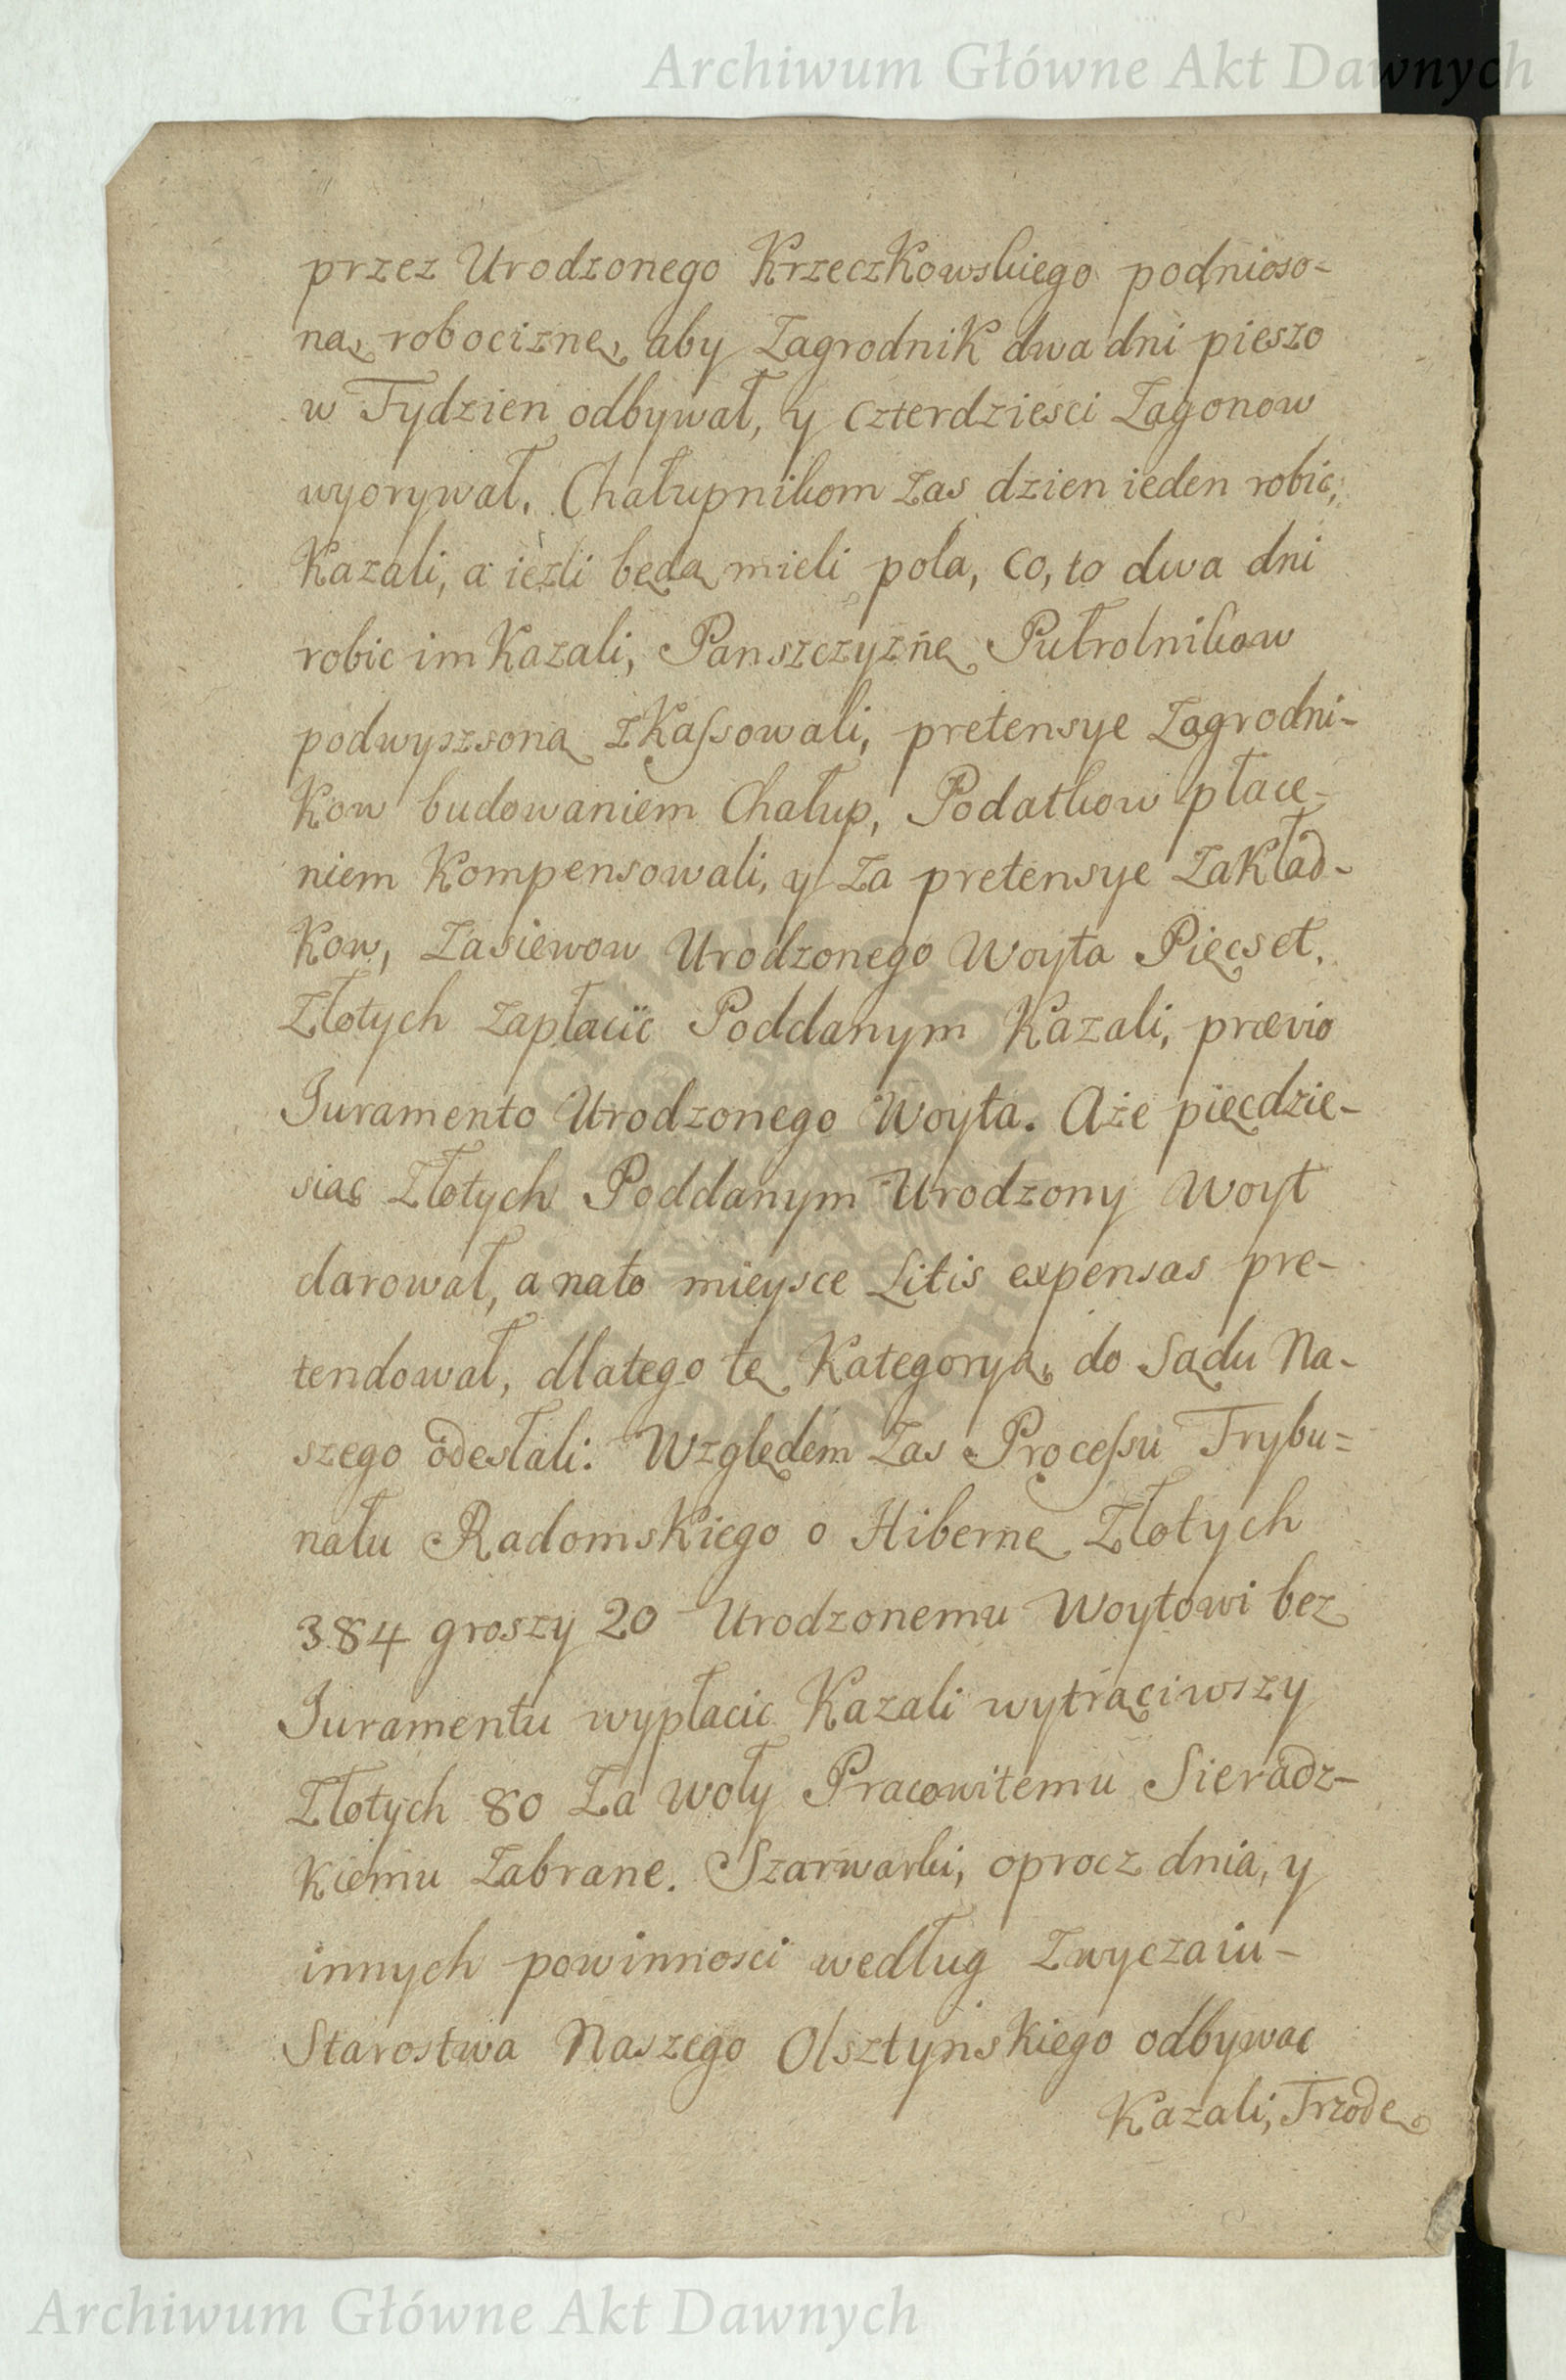 Archiwum Główne Akt Dawnych
przez Urodzonego Krzeczkowskiego podnioso-
ną robociznę, aby Zagrodnik dwa dni pieszo
w Tydzien odbywał, y czterdziesci Zagonow
wyorywał. Chałupnikom zas dzien ieden robic,
Kazali, a iezli będą mieli pola, co, to dwa dni
robic im Kazali, Panszczyznę Pułrolnikow
podwyszsoną zKaſsowali, pretensye Zagrodni-
kow budowaniem Chałup, Podatkow płace-
niem Kompensowali, y za pretensye Zakład-
kow, Zasiewow Urodzonego Woyta Pięcset,
Złotych zapłacic Poddanym Kazali, prævio
Juramento Urodzonego Woyta. Aże pięcdzie-
siąc Złotych Poddanym Urodzony Woyt
darował, a nato mieysce Litis expensas pre-
tendował, dlatego tę Kategoryą do Sądu Na-
szego odesłali: Względem zas Proceſsu Trybu=
nału Radomskiego o Hibernę Złotych
384 groszy 20 Urodzonemu Woytowi bez
Juramentu wypłacic Kazali wytrąciwszy
Złotych 80 Za woły Pracowitemu Sieradz-
kiemu Zabrane. Szarwarki, oprocz dnia, y
innych powinnosci według Zwyczaiu-
Starostwa Naszego Olsztynskiego odbywac
Kazali, Trzodę
Archiwum Główne Akt Dawnych